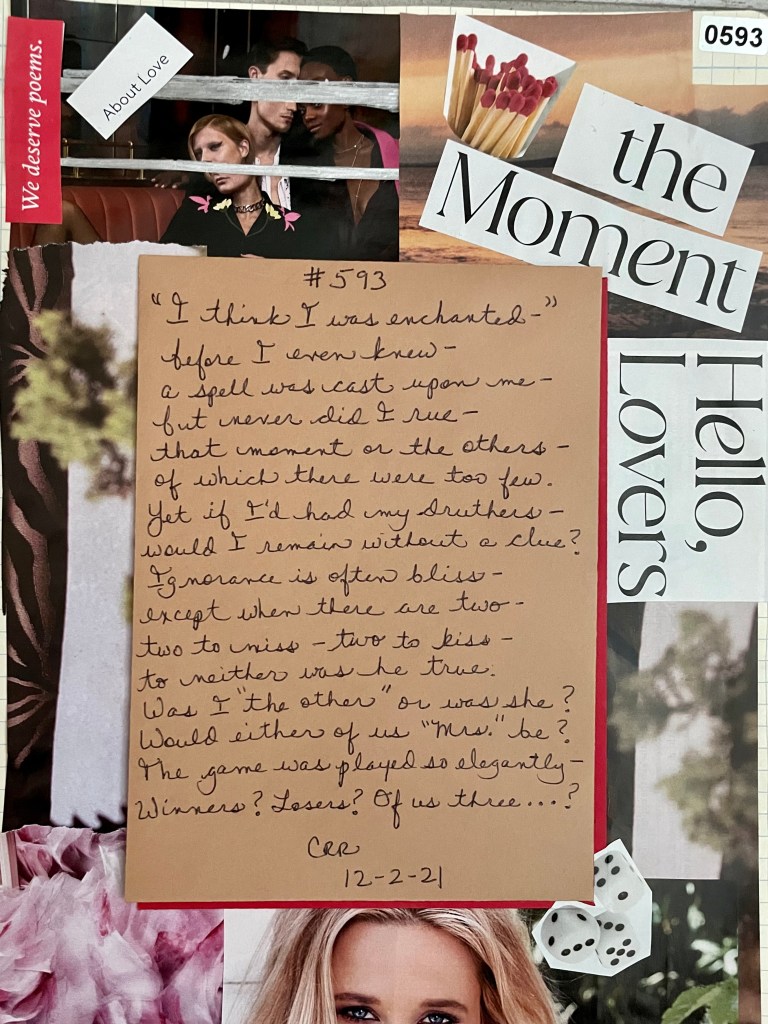 We deserve poems.
About Love
0593
the
Moment
Hello,
Lovers
#593
"I think I was enchanted-"
before I even knew-
a spell was cast upon me-
but never did I rue-
that moment or the others-
of which there were too few.
Yet if I'd had my druthers-
would I remain without a clue?
Ignorance is often bliss-
except when there are two-
two to miss - two to kiss-
to neither was he true.
Was I "the other" or was she?
Would either of us "Mrs." be?
The game was played so elegantly-
Winners? Losers? Of us three...?
CRR
12-2-21